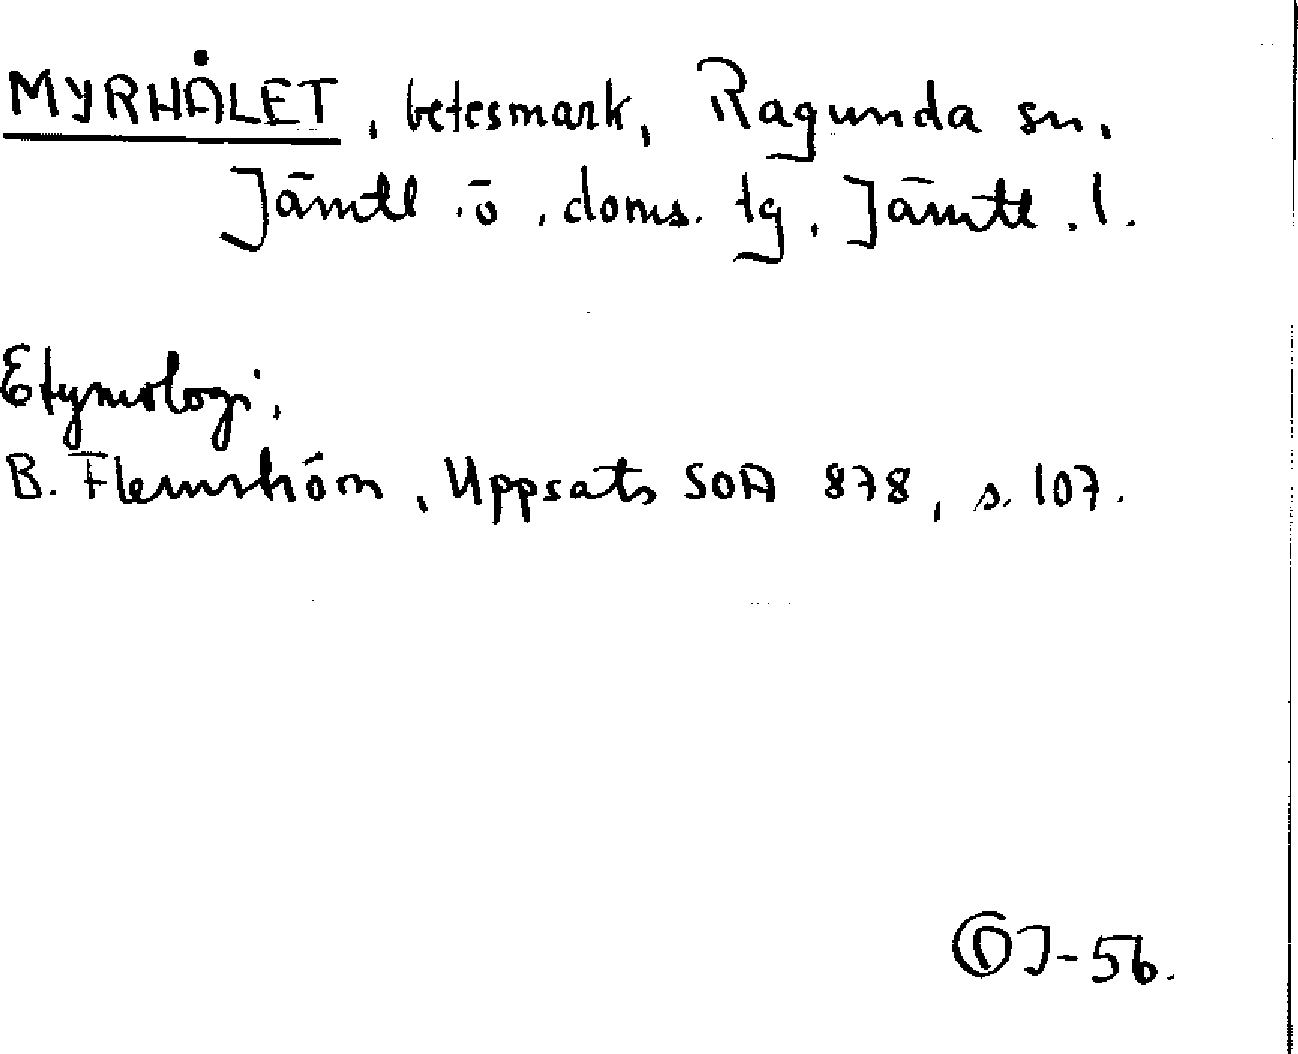 MYRHÅLET, betesmark, Ragunda sn.
Jämtl. ö. doms. tg. Jämtl. l.
Etymologi.
B. Flemström, Uppsats SOA 878, s. 107.
J-56.